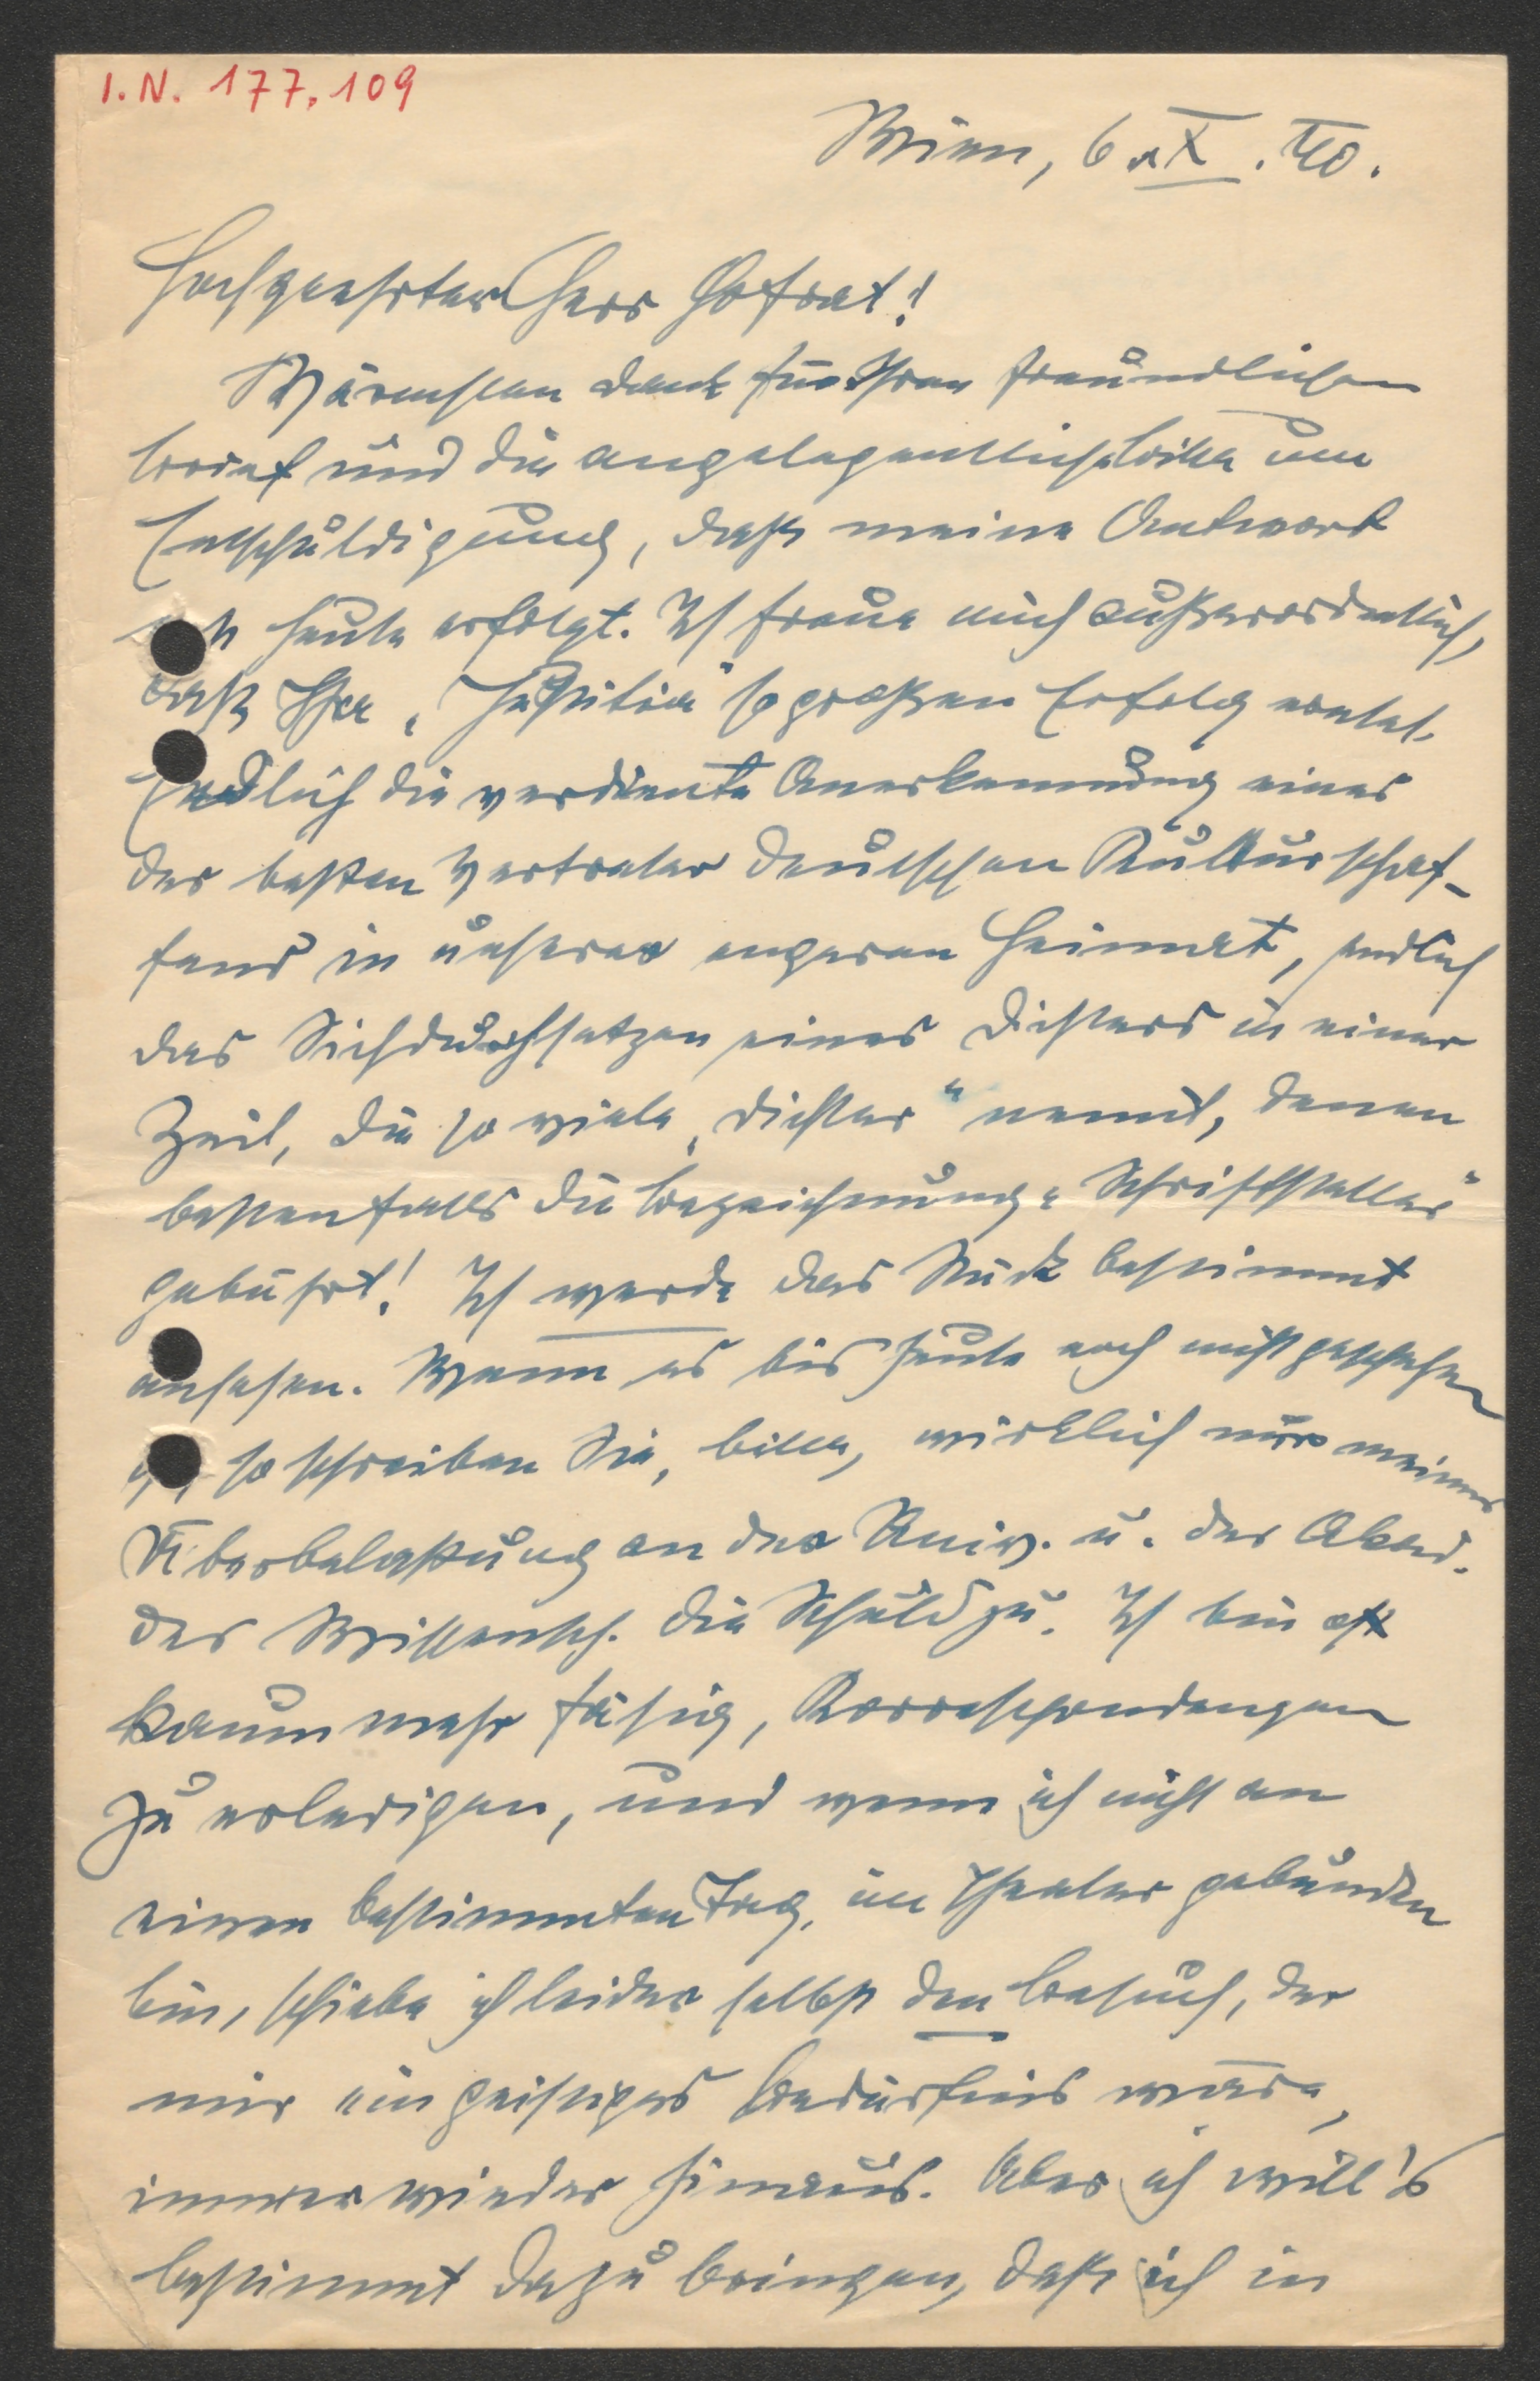 I.N. 177.109
Wien, 6. X. 40.
Hochgeehrter Herr Hofrat!
Wärmsten Dank für Ihren freundlichen
Brief und die angelegentliche Bitte um
Entschuldigung, daß meine Antwort
heute erfolgt. Ich freue mich außerordentlich,
daß Ihre so großen Erfolg erntet.
Endlich die verdiente Anerkennung eines
der besten Vertreter deutschen Kulturschaf-
fens in unserer engeren Heimat, endlich
das Sichdurchsetzen eines Dichters in einer
Zeit, die so viele „Dichter“ nennt, denen
bestenfalls die Bezeichnung „Schriftsteller“
gebührt! Ich werde das Stück bestimmt
ansehen. Wenn es bis heute noch nicht geschehen
so schreiben Sie, bitte, wirklich nur meiner
Überbelastung an der Univ. u. der Akad.
der Wissensch. die Schuld zu. Ich bin oft
kaum mehr fähig, Korrespondenzen
zu erledigen, und wenn ich nicht an
einen bestimmten Tag im Theater gebunden
bin, schiebe ich leider selbst den Besuch, der
mir ein geistiges Bedürfnis wäre,
immer wieder hinaus. Aber ich will's
bestimmt dazu bringen, daß ich in